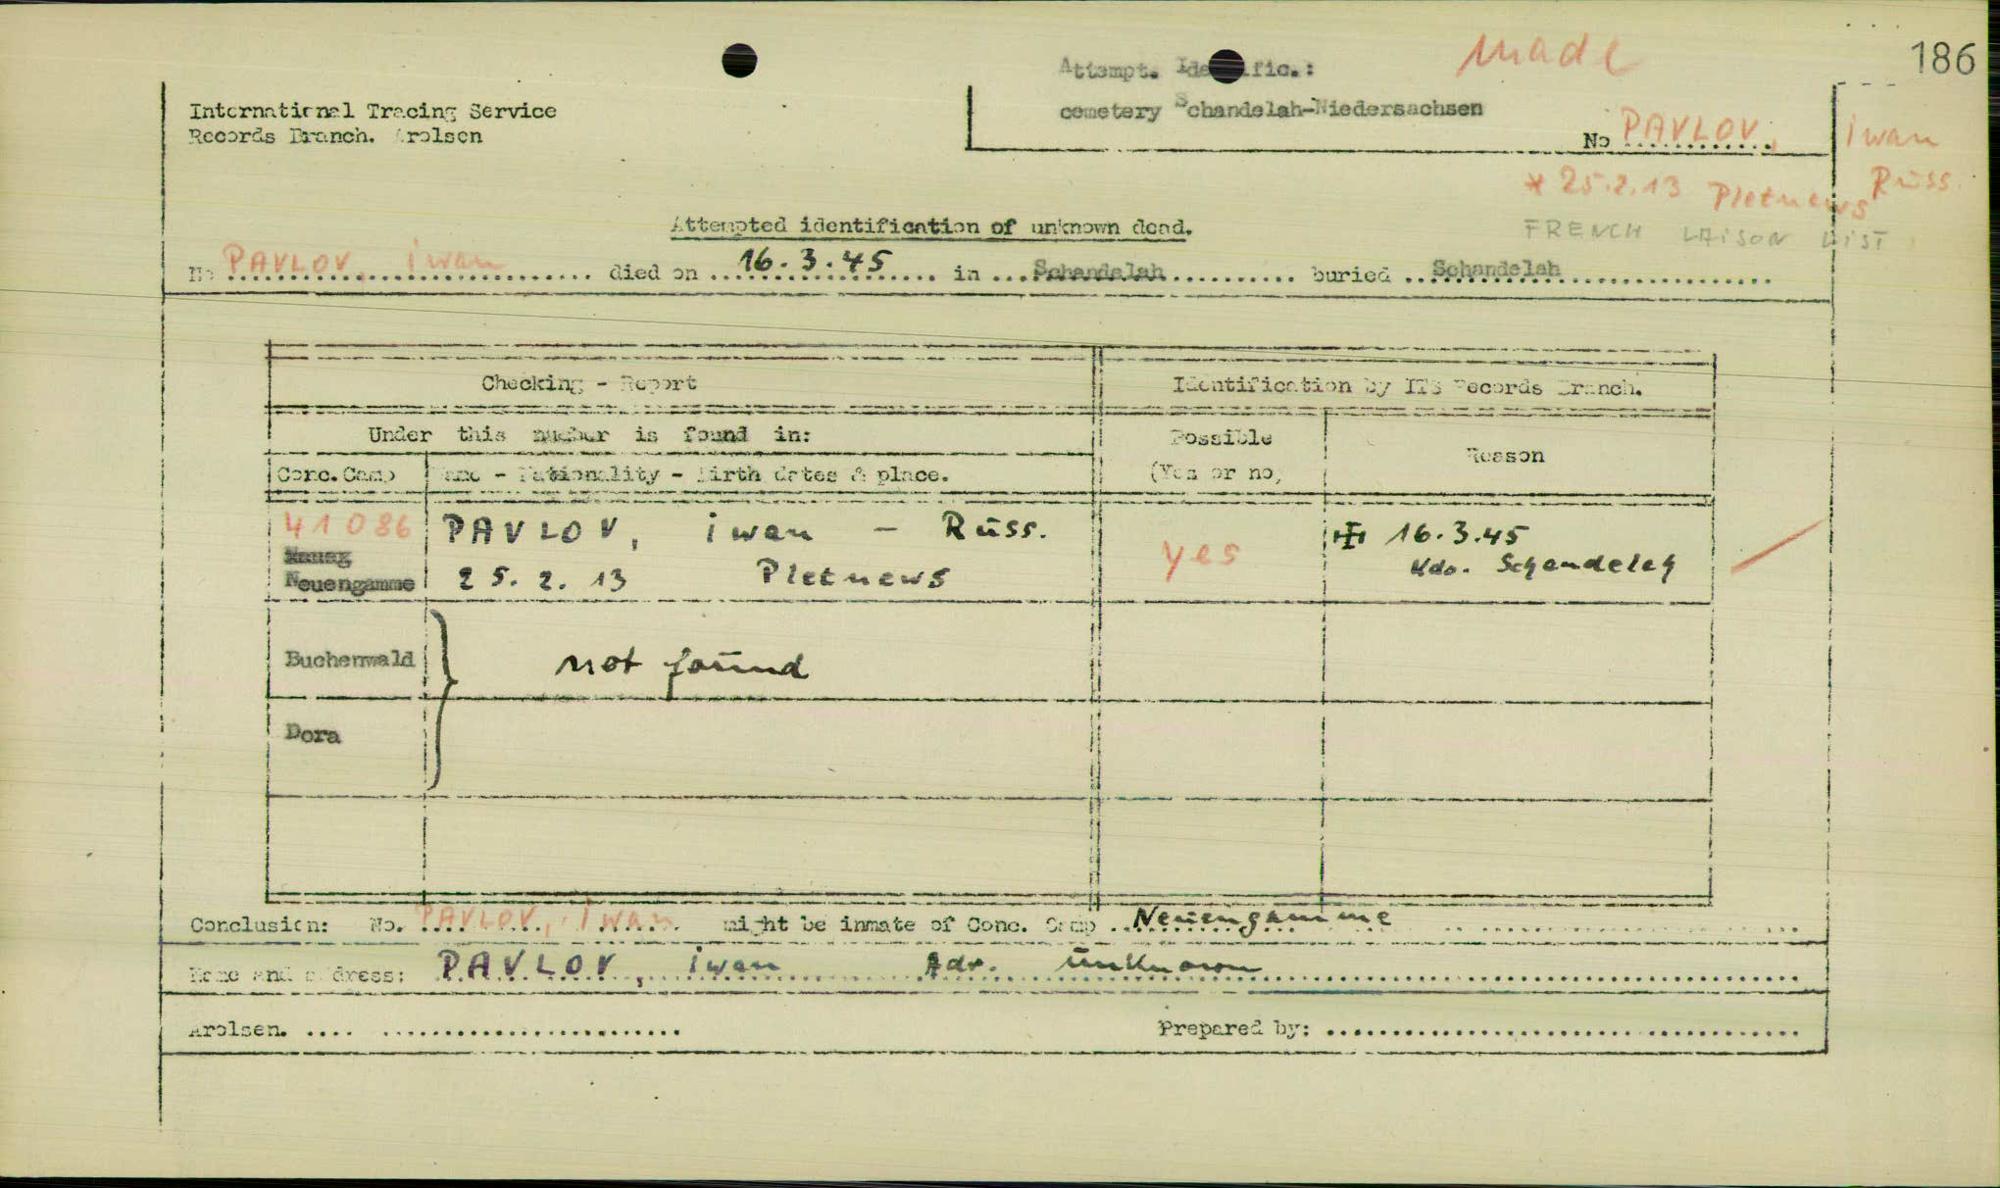 186
made
Attempt. Identific.:
cemetery Schandelah-Niedersachsen
International Tracing Service
Records Branch. Arolsen
No PAVLOV, iwan
* 25.2.13 Pletnews Rüss.
FRENCH LAISON LIST
Attempted identification of unknown dead.
No PAVLOV, iwan died on 16.3.45 in Schandelah buried Schandelah
Checking - Report
Identification by ITS Records Branch.
Under this number is found in:
Possible
(Yes or no)
Reason
Conc.Camp
Name - Nationality - Birth dates & place.
41086
PAVLOV, iwan - Rüss.
Neuengamme
25.2.13 Pletnews
yes
16.3.45
Kdo. Schandelah
Buchenwald
not found
Dora
Conclusion: No. PAVLOV, iwan might be inmate of Conc. Camp Neuengamme
Name and address: PAVLOV, iwan Adr. unknown
Arolsen.
Prepared by: